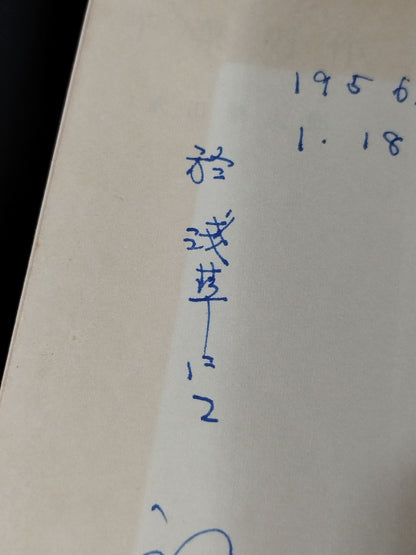 1956.
1. 18
於 浅草にて